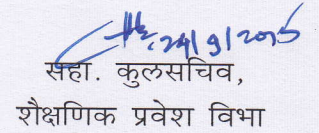 24/9/2015
सहा. कुलसचिव,
शैक्षणिक प्रवेश विभा